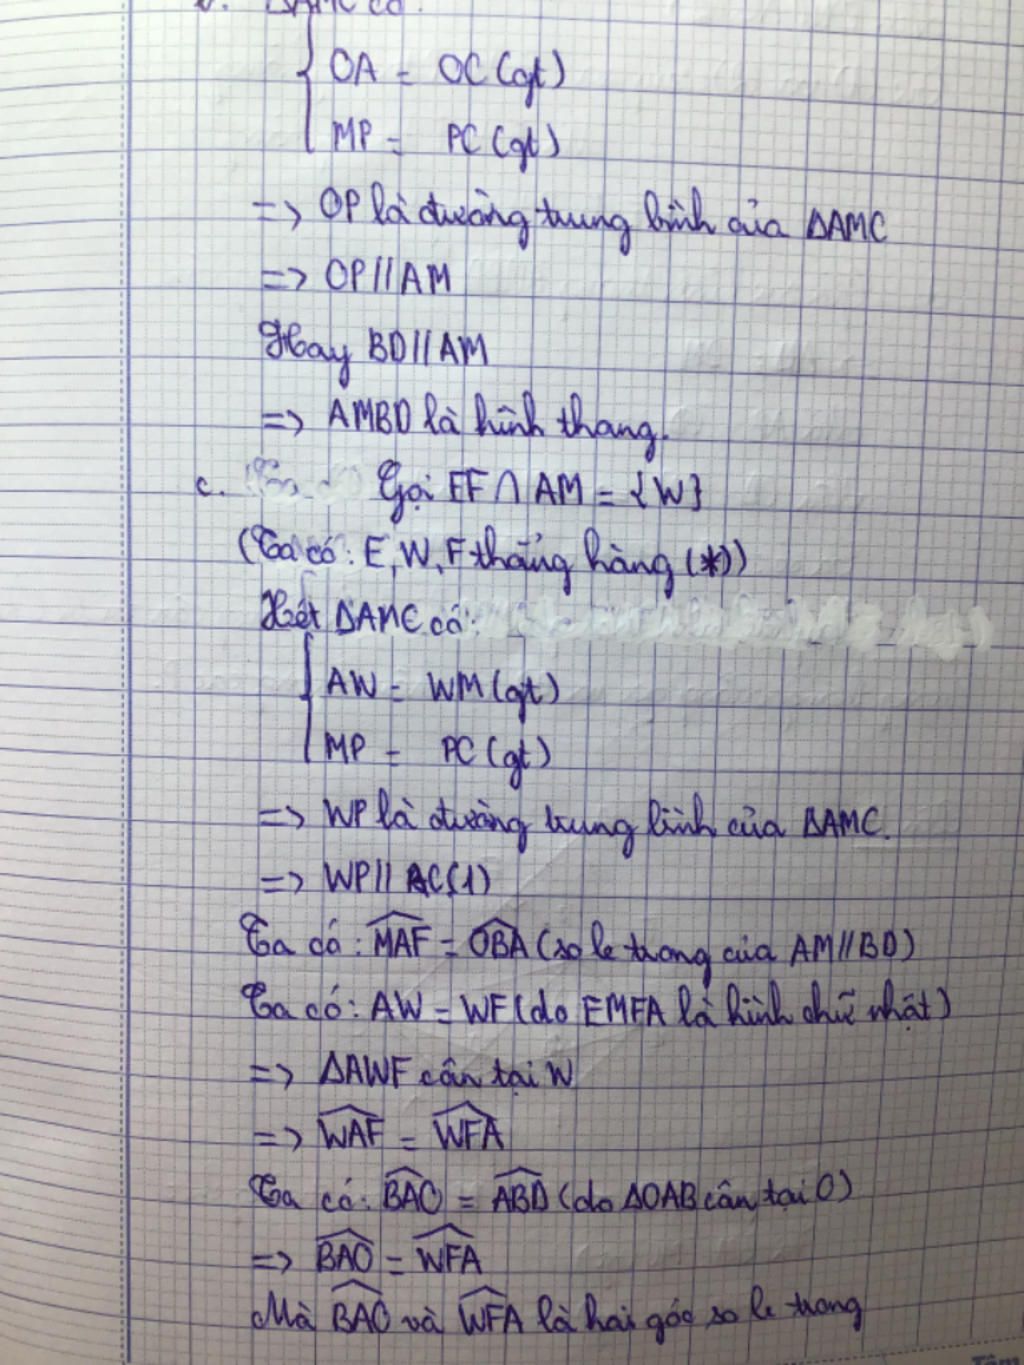 b. ΔAMC có:
OA = OC (gt)
MP = PC (gt)
=> OP là đường trung bình của ΔAMC
=> OP // AM
Hay BD // AM
=> AMBD là hình thang.
c. Gọi EF ∩ AM = {W}
(Ta có: E, W, F thẳng hàng (*))
Xét ΔAMC có:
AW = WM (gt)
MP = PC (gt)
=> WP là đường trung bình của ΔAMC.
=> WP // AC (1)
Ta có: \widehat{MAF} = \widehat{OBA} (so le trong của AM // BD)
Ta có: AW = WF (do EMFA là hình chữ nhật)
=> ΔAWF cân tại W
=> \widehat{WAF} = \widehat{WFA}
Ta có: \widehat{BAO} = \widehat{ABD} (do ΔOAB cân tại O)
=> \widehat{BAO} = \widehat{WFA}
Mà \widehat{BAO} và \widehat{WFA} là hai góc so le trong